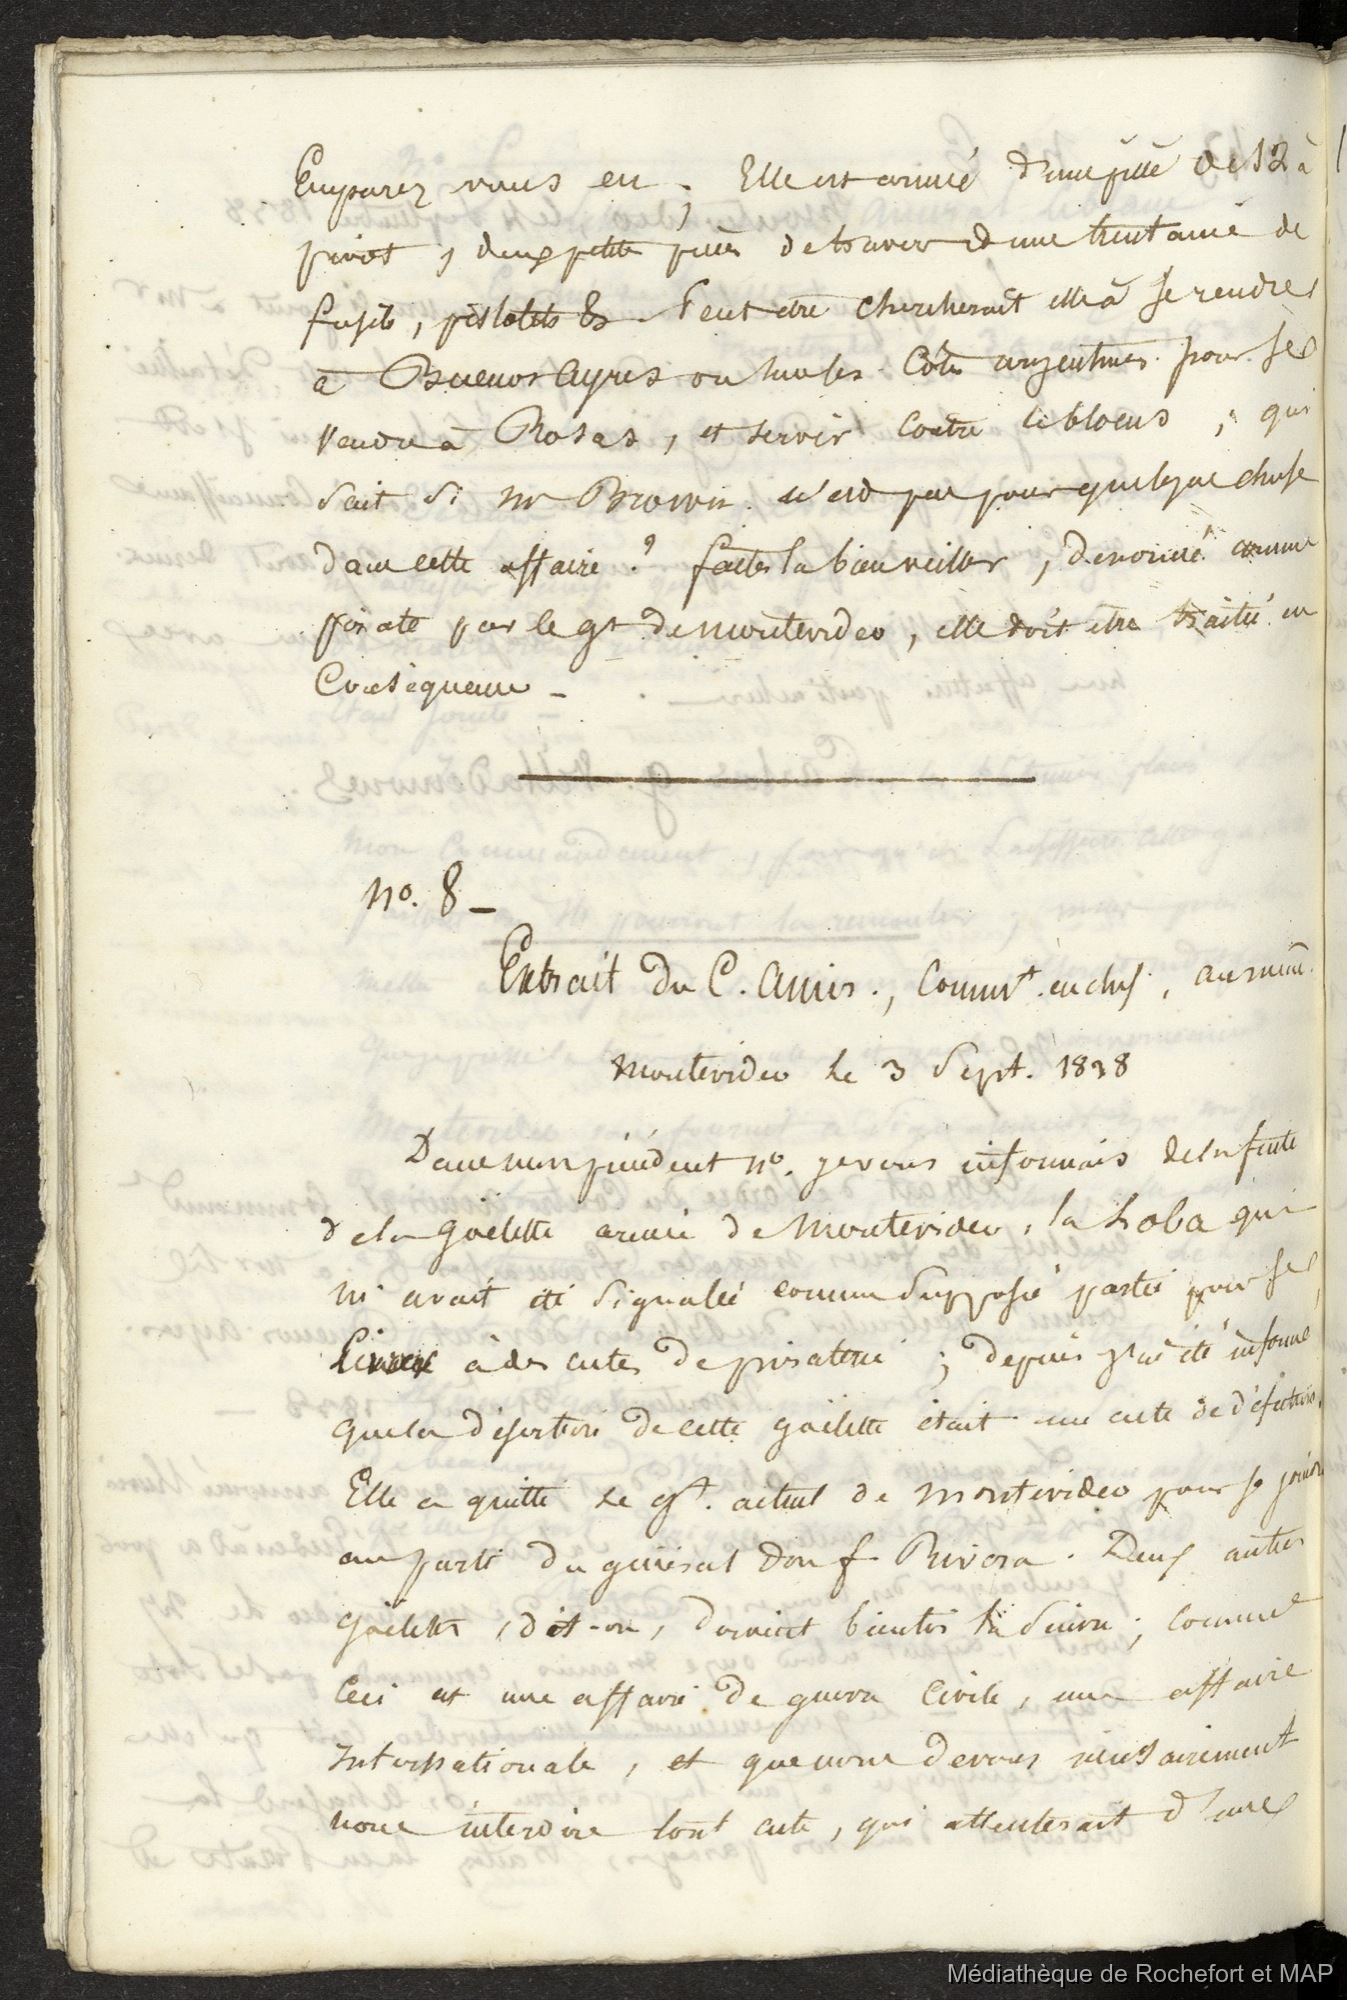 Emparez vous en ; Elle est armée d'une pièce de 12 à
pivot, deux petite pièces de travers & une trentaine de
fusils, pistolets &. Peut etre chercherait elle à se rendre
à Buenos Ayres ou sur les Côtes argentines pour se
vendre à Rosas, et servir contre le blocus ; qui
sait si Mr Brown n'est pas pour quelque chose
dans cette affaire ? faites la bien veiller, denoncé comme
pirate par le gt de Montevideo, elle doit etre traitée en
Conséquence -
No. 8 -
Extrait du C. Amir., Commt. en chef, au mim.
Montevideo le 3 Sept. 1838
Dans mon précédent No. je vous informais de la fuite
de la Goëlette armée de Montevideo, la Loba qui
m'avait été signalée comme supposée partie pour se
livrer à des actes de piraterie ; depuis j'ai été informé
que la désertion de cette goëlette était un acte de défection.
Elle a quitté le gt. actuel de Montevideo pour se joindre
au parti du général Don f. Rivera. Deux autres
Goëlettes, dit-on, doivent bientôt la suivre ; comme
Ceci est une affaire de guerre Civile, une affaire
Internationale, et que nous devons nécessairement
nous interdire tout acte, qui attenterait d'une
Médiathèque de Rochefort et MAP